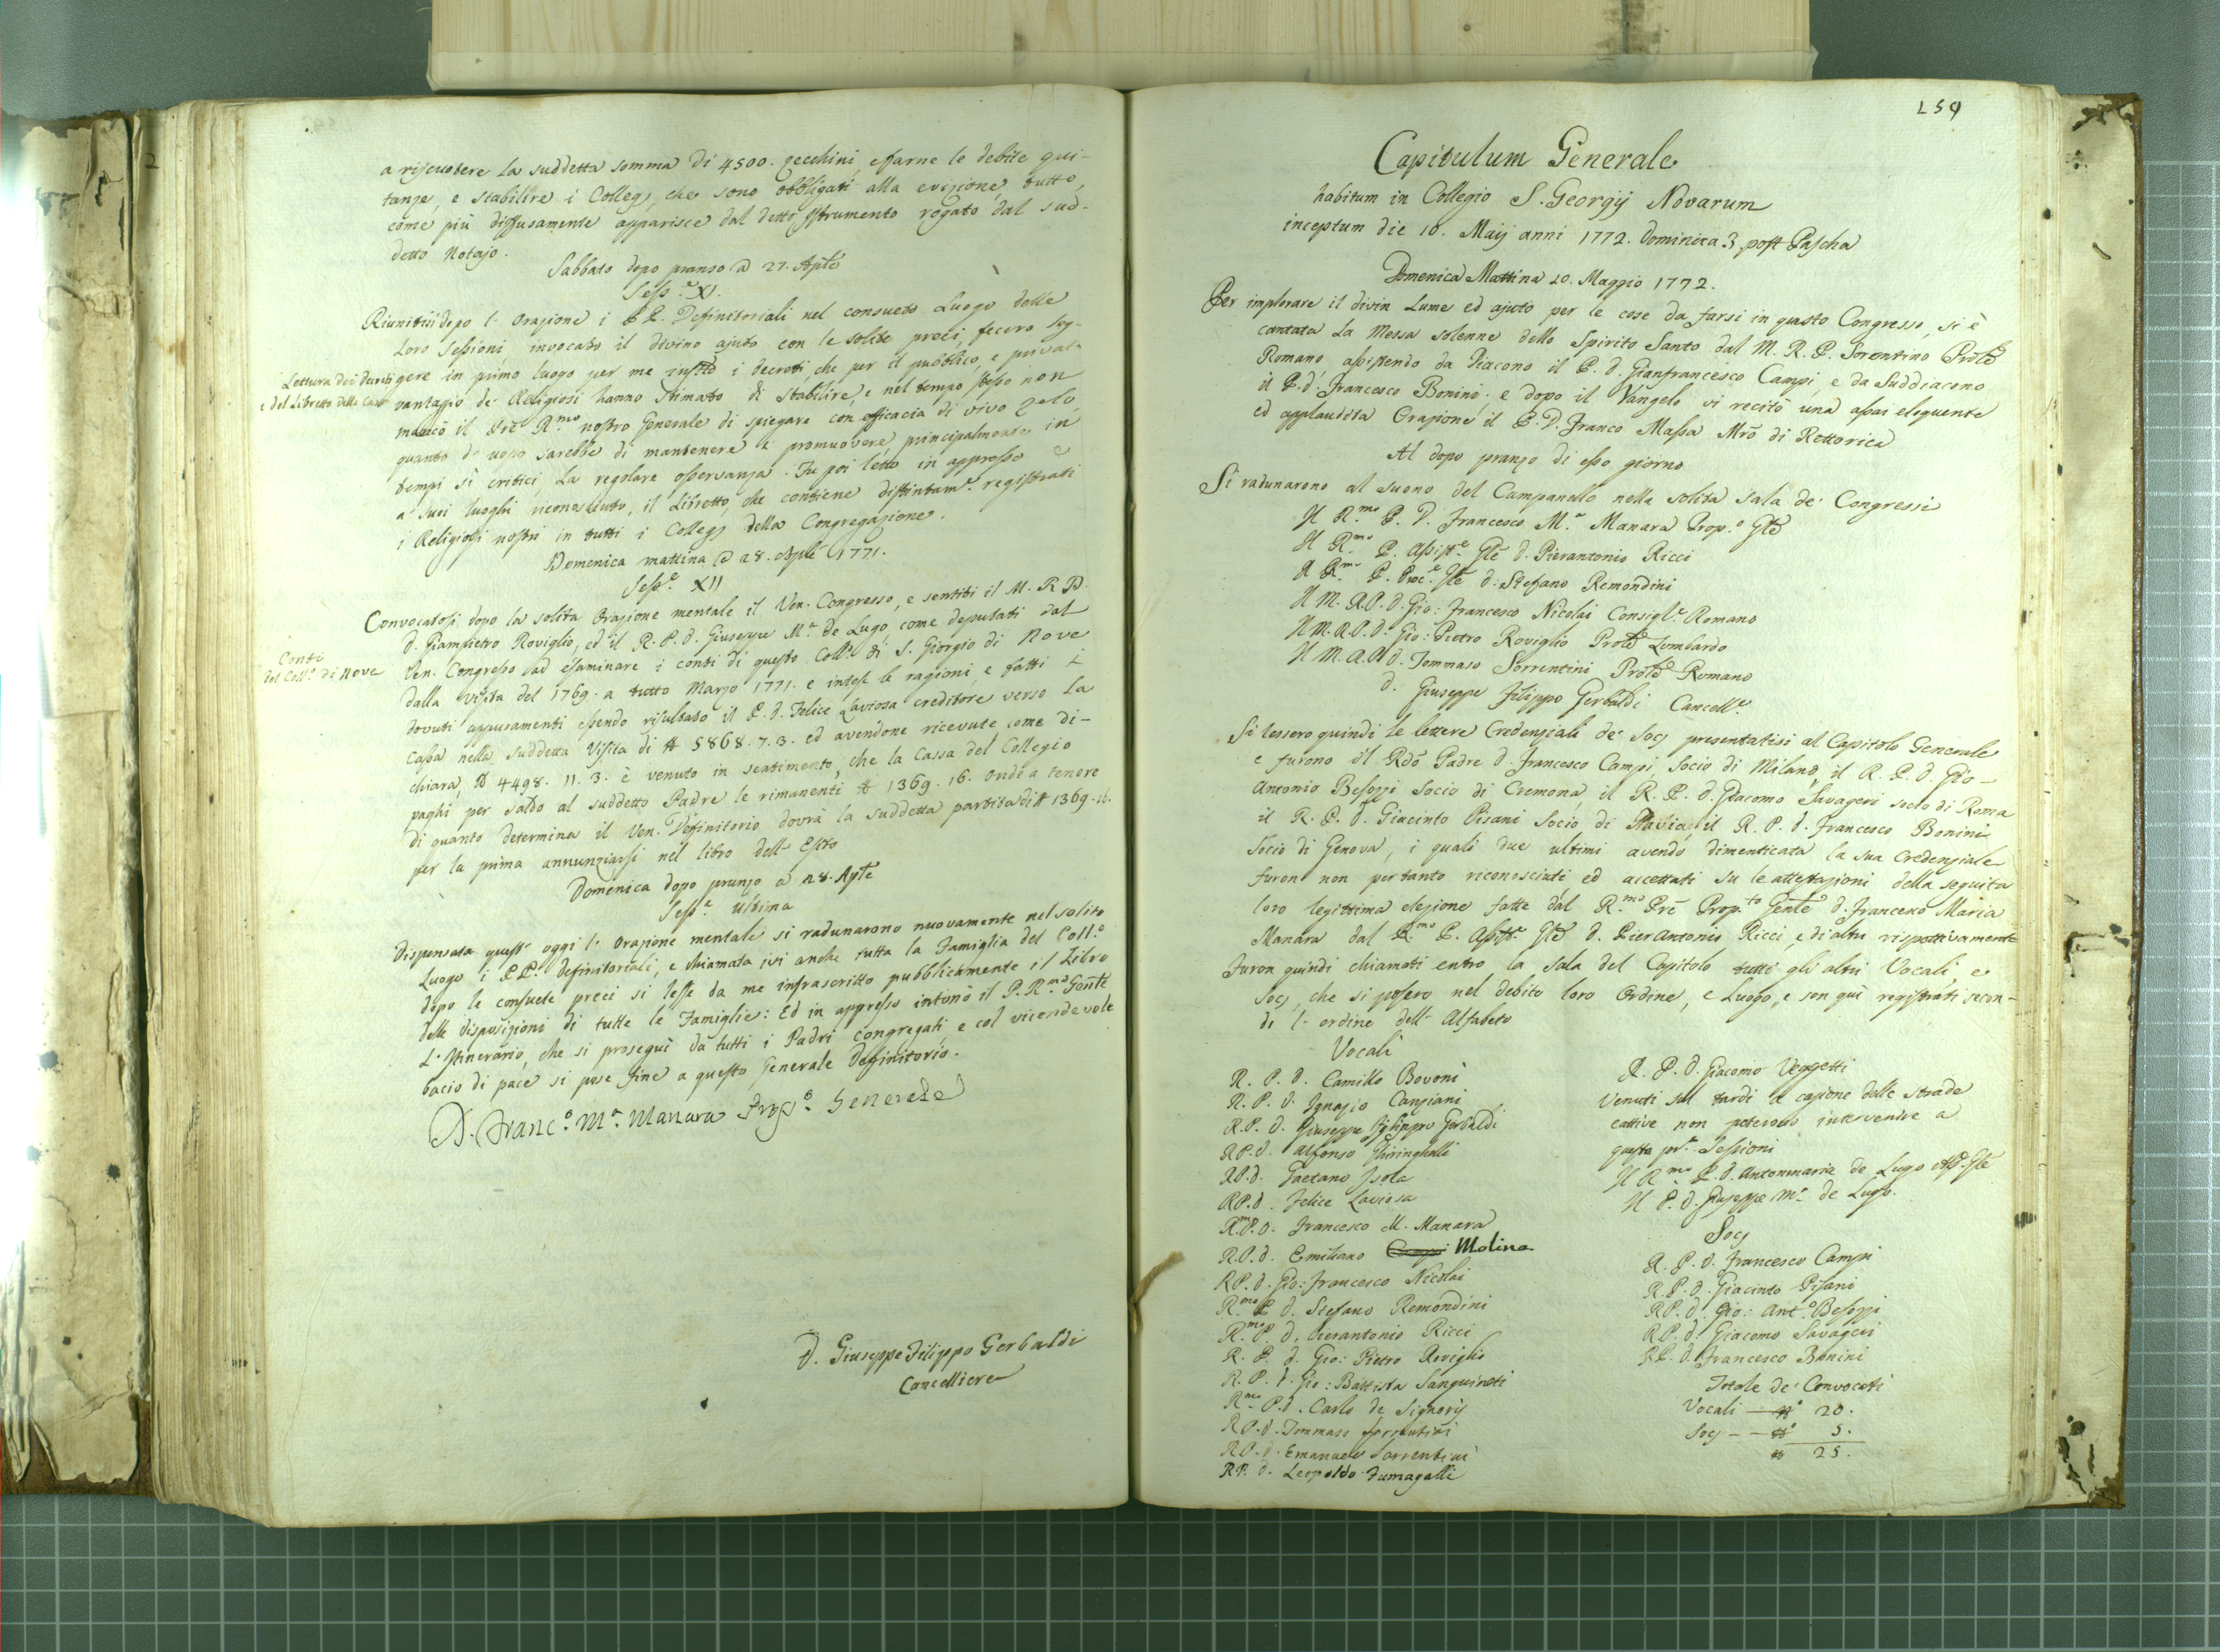 a riscuotere la suddetta somma di 4500. zecchini, e farne le debite qui-
tanze, e stabilire i Collegj, che sono obbligati alla evizione, tutto,
come più diffusamente apparisce dal detto Istrumento rogato dal sud-
detto Notajo.
Sabbato dopo pranzo a 27. Aple
Sess.e XI.
Riunitisi dopo l' orazione i PP. Definitoriali nel consueto Luogo delle
Loro Sessioni, invocato il divino ajuto con le solite preci, fecero leg-
Lettura dei decreti
e del Libretto delle Case
gere in primo luogo per me infrto i decreti, che per il pubblico, e privato
vantaggio de' Religiosi hanno stimato di stabilire, e nel tempo stesso non
mancò il Pre R.mo nostro Generale di spiegare con efficacia di vivo zelo,
quanto d' uopo sarebbe di mantenere e promuovere principalmente in
tempi sì critici, la regolare osservanza. Fu poi letto in appresso e
a suoi luoghi riconosciuto, il Libretto, che contiene distintam.e registrati
i Religiosi nostri in tutti i Collegj della Congregazione.
Domenica mattina a 28. Aple 1771.
Sess.e XII
Convocatosi dopo la solita orazione mentale il Ven. Congresso, e sentiti il M. R. P.
D. Giampietro Roviglio, ed il R. P. D. Giuseppe M.a de Lugo, come deputati dal
Conti
del Coll.o di Nove
Ven. Congresso ad esaminare i conti di questo Coll.o di S. Giorgio di Nove
dalla visita del 1769. a tutto Marzo 1771. e intese le ragioni, e fatti i
dovuti appuramenti essendo risultato il P. D. Felice Laviosa creditore verso la
Cassa nella suddetta Visita di ₶ 5868. 7. 3. ed avendone ricevute come di-
chiara, ₶ 4498. 11. 3. è venuto in sentimento, che la Cassa del Collegio
paghi per saldo al suddetto Padre le rimanenti ₶ 1369. 16. Onde a tenore
di quanto determina il Ven. Definitorio dovrà la suddetta partita di ₶ 1369. 16.
per la prima annunziarsi nel libro dell' Esito
Domenica dopo pranzo a 28. Aple
Sess.e Ultima
Dispensata quest' oggi l' orazione mentale si radunarono nuovamente nel solito
Luogo i PP. definitoriali, e chiamata ivi anche tutta la Famiglia del Coll.o
dopo le consuete preci si lesse da me infrascritto pubblicamente il Libro
delle disposizioni di tutte le Famiglie: Ed in appresso intonò il P. R.mo Gente
L' Itinerario, che si proseguì da tutti i Padri congregati, e col vicendevole
bacio di pace si pose fine a questo Generale Definitorio.
D. Franc.o M.a Manara Prep.o Generale
D. Giuseppe Filippo Gerbaldi
Cancelliere
259
Capitulum Generale
habitum in Collegio S. Georgij Novarum
inceptum die 10. Maij anni 1772. Dominica 3. post Pascha
Domenica Mattina 10. Maggio 1772.
Per implorare il divin Lume ed ajuto per le cose da farsi in questo Congresso, si è
cantata la Messa solenne dello Spirito Santo dal M. R. P. Sorentino Prole
Romano, assistendo da Diacono il P. D. Gianfrancesco Campi, e da Suddiacono
il P. D. Francesco Bonini. e dopo il Vangelo vi recitò una assai eloquente
ed applaudita Orazione il P. D. Franco Massa Mro di Rettorica
Al dopo pranzo di esso giorno
Si radunarono al suono del Campanello nella solita sala de' Congressi
Il R.mo P. D. Francesco M.a Manara Prep.o Gle
Il R.mo P. Assist.e Gle D. Pierantonio Ricci
Il R.mo P. Proc.e Gle D. Stefano Remondini
Il M. R. P. D. Gio: Francesco Nicolai Consigl.e Romano
Il M. R. P. D. Gio: Pietro Roviglio Prole Lombardo
Il M. R. P. D. Tommaso Sorrentini Prole Romano
D. Giuseppe Filippo Gerbaldi Cancell.e
Si lessero quindi le lettere Credenziali de' Socj presentatisi al Capitolo Generale
e furono il Rdo Padre D. Francesco Campi, Socio di Milano, il R. P. D. Gio-
Antonio Besozzi Socio di Cremona, il R. P. D. Giacomo Savageri socio di Roma
il R. P. D. Giacinto Pisani Socio di Pavia, il R. P. D. Francesco Bonini
Socio di Genova, i quali due ultimi avendo dimenticata la sua Credenziale
furon non pertanto riconosciuti ed accettati su le attestazioni della seguita
loro legittima elezione fatte dal R.mo Pre Prep.to Gente D. Francesco Maria
Manara dal R.mo P. Assist.e Gle D. Pier Antonio Ricci, e di altri rispettivamente
Furon quindi chiamati entro la sala del Capitolo tutti gli altri Vocali, e
Socj, che si posero nel debito loro Ordine, e Luogo, e son quì registrati secon-
do l' ordine dell' Alfabeto
Vocali
R. P. D. Camillo Bovoni
R. P. D. Ignazio Canziani
R. P. D. Giuseppe Filippo Gerbaldi
R. P. D. Alfonso Ghiringhelli
R. P. D. Gaetano Isola
R. P. D. Felice Laviosa
R.mo P. D. Francesco M. Manara
R. P. D. Emiliano Campi Molina
R. P. D. Gio: Francesco Nicolai
R.mo P. D. Stefano Remondini
R.mo P. D. Pierantonio Ricci
R. P. D. Gio: Pietro Roviglio
R. P. D. Gio: Battista Sanguineti
R.mo P. D. Carlo de Signorij
R. P. D. Tommaso Sorrentini
R. P. D. Emanuele Sorrentini
R. P. D. Leopoldo Fumagalli
R. P. D. Giacomo Veggetti
Venuti sul tardi a cagione delle strade
cattive non poterono intervenire a
questa pr.a Sessioni
Il R.mo P. D. Antonmaria de Lugo Ass. Gle
Il P. D. Giuseppe M.a de Lugo.
Socj
R. P. D. Francesco Campi
R. P. D. Giacinto Pisani
R. P. D. Gio: Ant.o Besozzi
R. P. D. Giacomo Savageri
R. P. D. Francesco Bonini
Totale de' Convocati
Vocali — n.o 20.
Socj — n.o 5.
n 25.